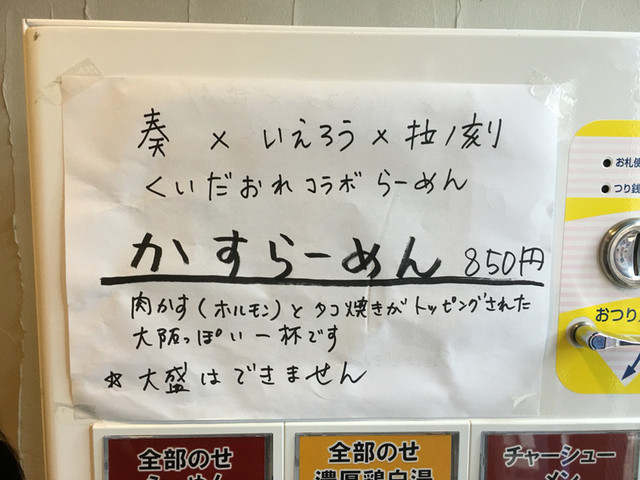 奏 × いえろう × 拉ノ刻
くいだおれコラボらーめん
かすらーめん 850円
肉かす(ホルモン)とタコ焼きがトッピングされた
大阪っぽい一杯です
☆大盛はできません
お札
つり銭
おつり
全部のせ
全部のせ
濃厚鶏白湯
チャーシュー
メン